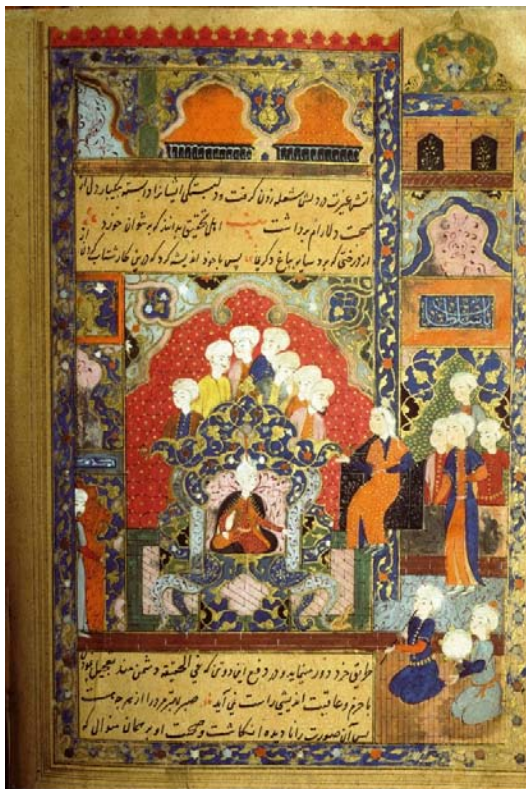 آتش غیرت در دلش شعله زدن گرفت و دلبستگی ایشانرا دانسته بیکبار دل از
صحبت دلارام برداشت بیت اهل تحقیق بدانند که بر نتوان خورد
از درختی که برد سایه بباغ دگران پس با خود اندیشه کرد که درین کار شتاب کردن
طریق خرد دور مینماید و در دفع این دو تن که فی الحقیقة دشمن منند تعجیل نمودن
با حزم و عاقبت اندیشی راست نمی آید صبر بهتر مرد را از هر چه هست
پس آن صورت را نادیده انگاشت و صحبت او بر همان منوال که